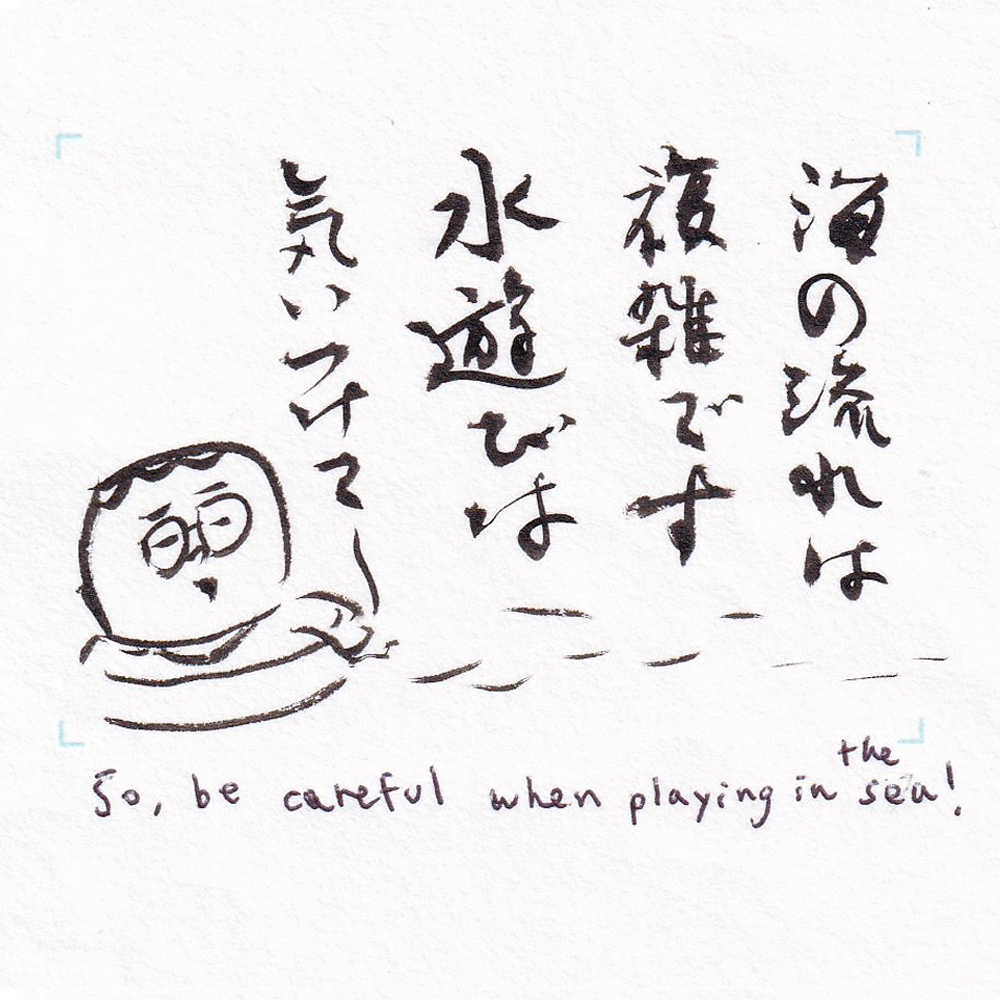 海の流れは
複雑です
水遊びは
気いつけて
So, be careful when playing in the sea!